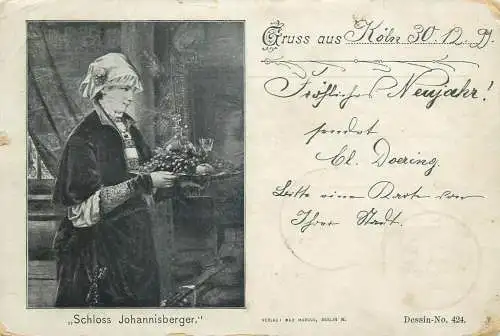 Gruss aus Köln 30. 12. 
Fröhliches Neujahr!
sendet
El. Doering.
Bitte eine Karte von
Ihrer Stadt.
„Schloss Johannisberger.“
VERLAG: MAX MARCUS, BERLIN W.
Dessin-No. 424.